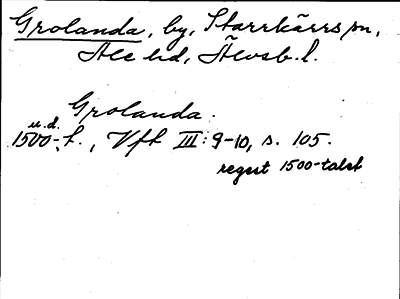 Grolanda, by, Starrkärrs sn,
Ale hd, Älvsb. l.
Grolanda.
u.d.
1500-t., Vft III: 9-10, s. 105.
regest 1500-talet